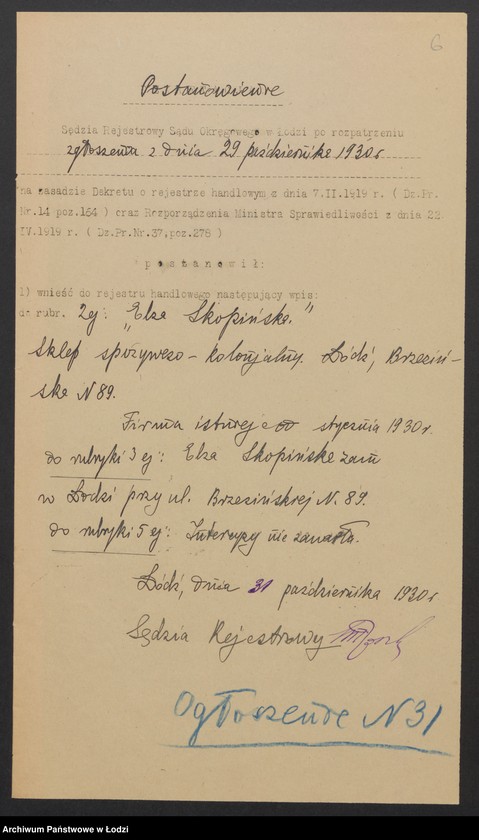 6
Postanowienie
Sędzia Rejestrowy Sądu Okręgowego w Łodzi po rozpatrzeniu
zgłoszenia z dnia 29 października 1930 r
na zasadzie Dekretu o rejestrze handlowym z dnia 7.II.1919 r. ( Dz.Pr.
Nr.14 poz.164 ) oraz Rozporządzenia Ministra Sprawiedliwości z dnia 22
IV.1919 r. ( Dz.Pr.Nr.37,poz.278 )
p o s t a n o w i ł:
1) wnieść do rejestru handlowego następujący wpis:
do rubr. 2ej: "Elza Skopińska."
Sklep spożywczo - kolonjalny. Łódź, Brzeziń-
ska N 89.
Firma istnieje od stycznia 1930 r.
do rubryki 3 ej: Elza Skopińska zam
w Łodzi przy ul. Brzezińskiej N. 89.
do rubryki 5 ej: Intercyzy nie zawarła.
Łódź, dnia 31 października 1930 r
Sędzia Rejestrowy
Ogłoszenie N 31
Archiwum Państwowe w Łodzi